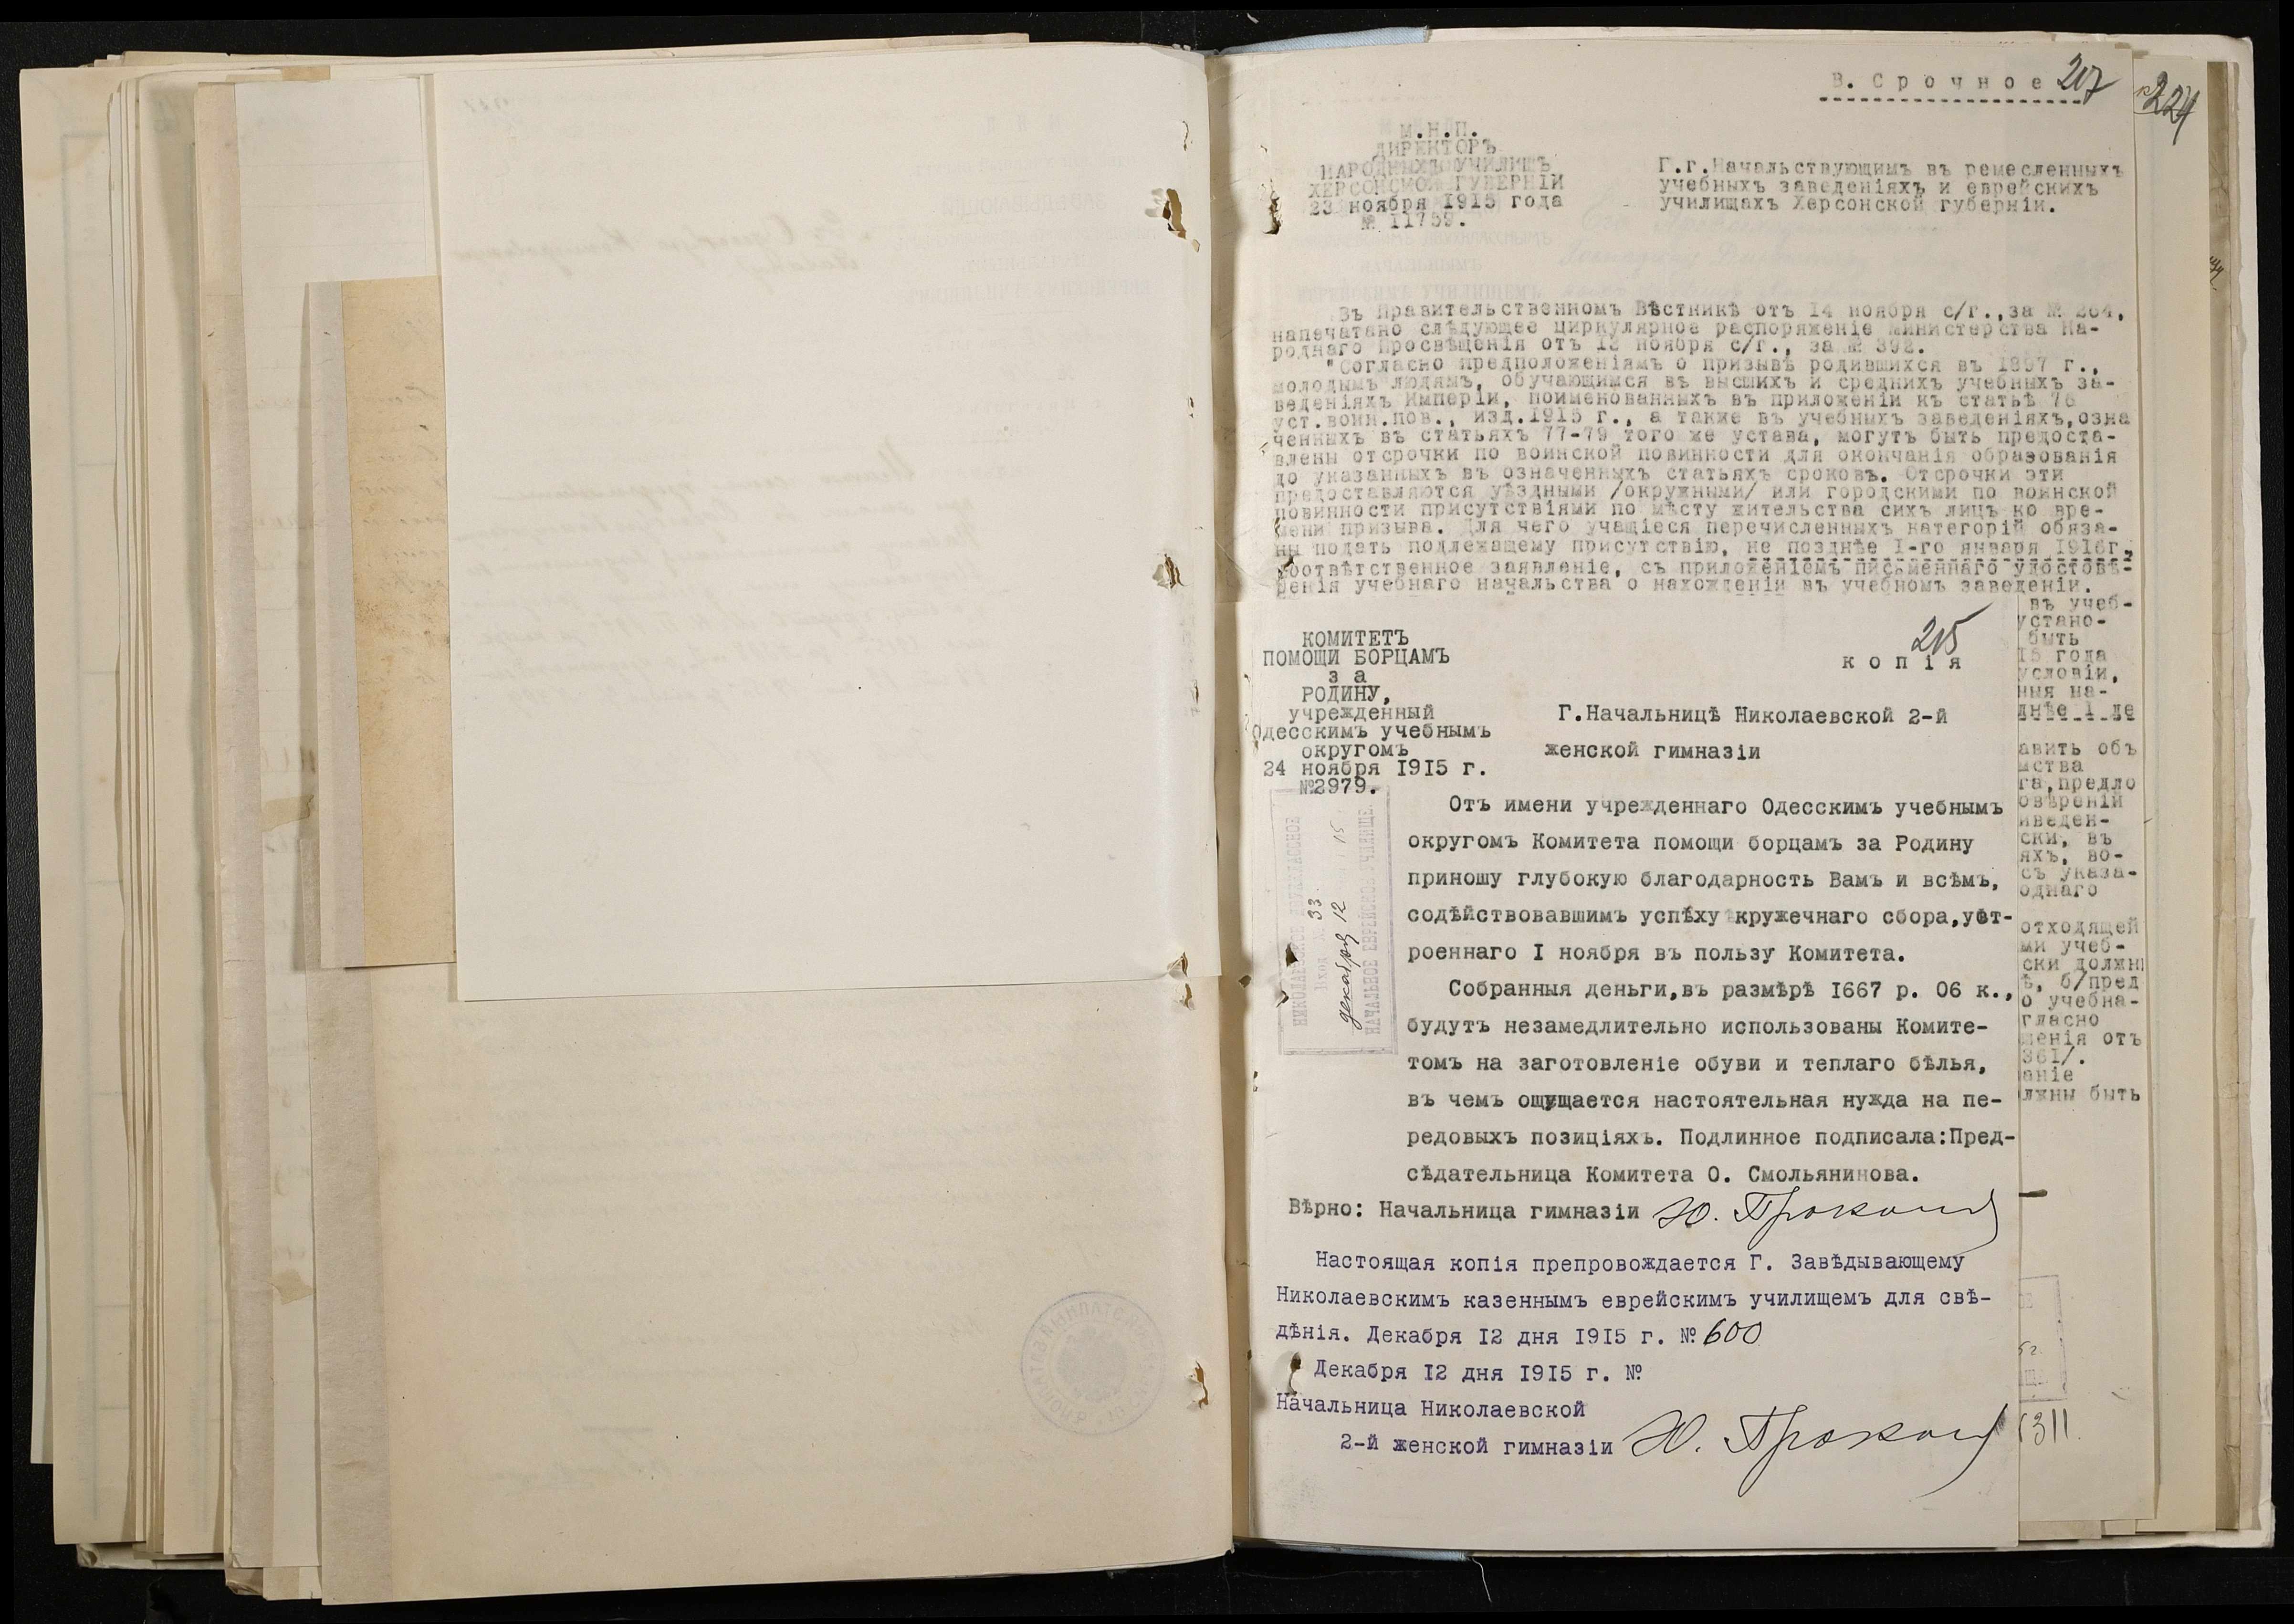 В. С р о ч н о е 207
224
М.Н.П.
ДИРЕКТОРЪ
НАРОДНЫХЪ УЧИЛИЩЪ
ХЕРСОНСКОЙ ГУБЕРНІИ
23 ноября 1915 года
№ 11759.
Г.г.Начальствующимъ въ ремесленныхъ
учебныхъ заведеніяхъ и еврейскихъ
училищахъ Херсонской губерніи.
Въ Правительственномъ Вѣстникѣ отъ 14 ноября с/г.,за № 264,
напечатано слѣдующее циркулярное распоряженіе Министерства На-
роднаго Просвѣщенія отъ 12 ноября с/г., за № 392.
"Согласно предположеніямъ о призывѣ родившихся въ 1897 г.,
молодымъ людямъ, обучающимся въ высшихъ и среднихъ учебныхъ за-
веденіяхъ Имперіи, поименованныхъ въ приложеніи къ статьѣ 76
уст.воин.пов., изд.1915 г., а также въ учебныхъ заведеніяхъ,озна
ченныхъ въ статьяхъ 77-79 того же устава, могутъ быть предоста-
влены отсрочки по воинской повинности для окончанія образованія
до указанныхъ въ означенныхъ статьяхъ сроковъ. Отсрочки эти
предоставляются уѣздными /окружными/ или городскими по воинской
повинности присутствіями по мѣсту жительства сихъ лицъ ко вре-
мени призыва. Для чего учащіеся перечисленныхъ категорій обяза-
ны подать подлежащему присутствію, не позднѣе I-го января 1916г.,
соотвѣтственное заявленіе, съ приложеніемъ письменнаго удостовѣ-
ренія учебнаго начальства о нахожденіи въ учебномъ заведеніи.
КОМИТЕТЪ
ПОМОЩИ БОРЦАМЪ
з а
РОДИНУ,
учрежденный
Одесскимъ учебнымъ
округомъ
24 ноября 1915 г.
№2979.
215
к о п і я
Г.Начальницѣ Николаевской 2-й
женской гимназіи
Отъ имени учрежденнаго Одесскимъ учебнымъ
округомъ Комитета помощи борцамъ за Родину
приношу глубокую благодарность Вамъ и всѣмъ,
содѣйствовавшимъ успѣху кружечнаго сбора,уст-
роеннаго I ноября въ пользу Комитета.
Собранныя деньги,въ размѣрѣ 1667 р. 06 к.,
будутъ незамедлительно использованы Комите-
томъ на заготовленіе обуви и теплаго бѣлья,
въ чемъ ощущается настоятельная нужда на пе-
редовыхъ позиціяхъ. Подлинное подписала:Пред-
сѣдательница Комитета О. Смольянинова.
Вѣрно: Начальница гимназіи Ю.
Настоящая копія препровождается Г. Завѣдывающему
Николаевскимъ казеннымъ еврейскимъ училищемъ для свѣ-
дѣнія. Декабря 12 дня 1915 г. № 600
Декабря 12 дня 1915 г. №
Начальница Николаевской
2-й женской гимназіи Ю.
НИКОЛАЕВСКОЕ ДВУХКЛАССНОЕ
Вход. 33
декабря 12 15
НАЧАЛЬНОЕ ЕВРЕЙСКОЕ УЧИЛИЩЕ
въ учеб-
устано-
быть
15 года
условіи,
ныя на-
днѣе I де
авить объ
мства
га,предло
овѣреній
иведен-
ски, въ
яхъ, во-
съ указа-
однаго
отходящей
ми учеб-
ски должны
ѣ, б/пред
о учебна-
гласно
щенія отъ
361/.
аніе
лжны быть
1311.